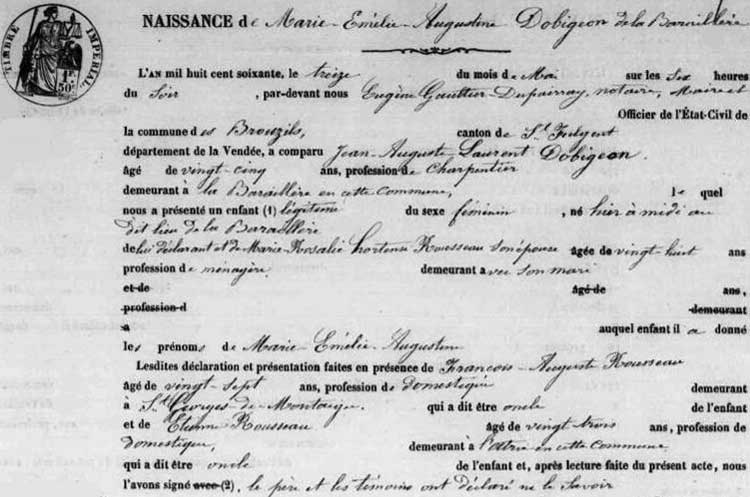 TIMBRE IMPÉRIAL
1F.
50c
NAISSANCE de Marie-Emélie-Augustine Dobigeon de la Baraillère
L'AN mil huit cent soixante, le treize du mois de Mai sur les Six heures
du Soir, par-devant nous Eugène Gaultier Dupairray, notaire, Maire et
Officier de l'État-Civil de
la commune des Brouzils, canton de St Fulgent
département de la Vendée, a comparu Jean-Auguste-Laurent Dobigeon
âgé de vingt-cinq ans, profession de Charpentier
demeurant à la Baraillère en cette Commune, le quel
nous a présenté un enfant (1) légitime du sexe féminin, né hier à midi au
dit lieu de la Baraillère
de lui déclarant et de Marie-Rosalie hortense Rousseau son épouse âgée de vingt huit ans
profession de ménagère demeurant avec son mari
et de âgé de ans,
profession d demeurant
à auquel enfant il a donné
les prénoms de Marie-Emélie-Augustine
Lesdites déclaration et présentation faites en présence de François-Auguste Rousseau
âgé de vingt-sept ans, profession de domestique demeurant
à St Georges-de-Montaigu qui a dit être oncle de l'enfant
et de Etienne Rousseau âgé de vingt-trois ans, profession de
domestique, demeurant à l'Otrie en cette Commune
qui a dit être oncle de l'enfant et, après lecture faite du présent acte, nous
l'avons signé avec (2), le père et les témoins ont déclaré ne le Savoir